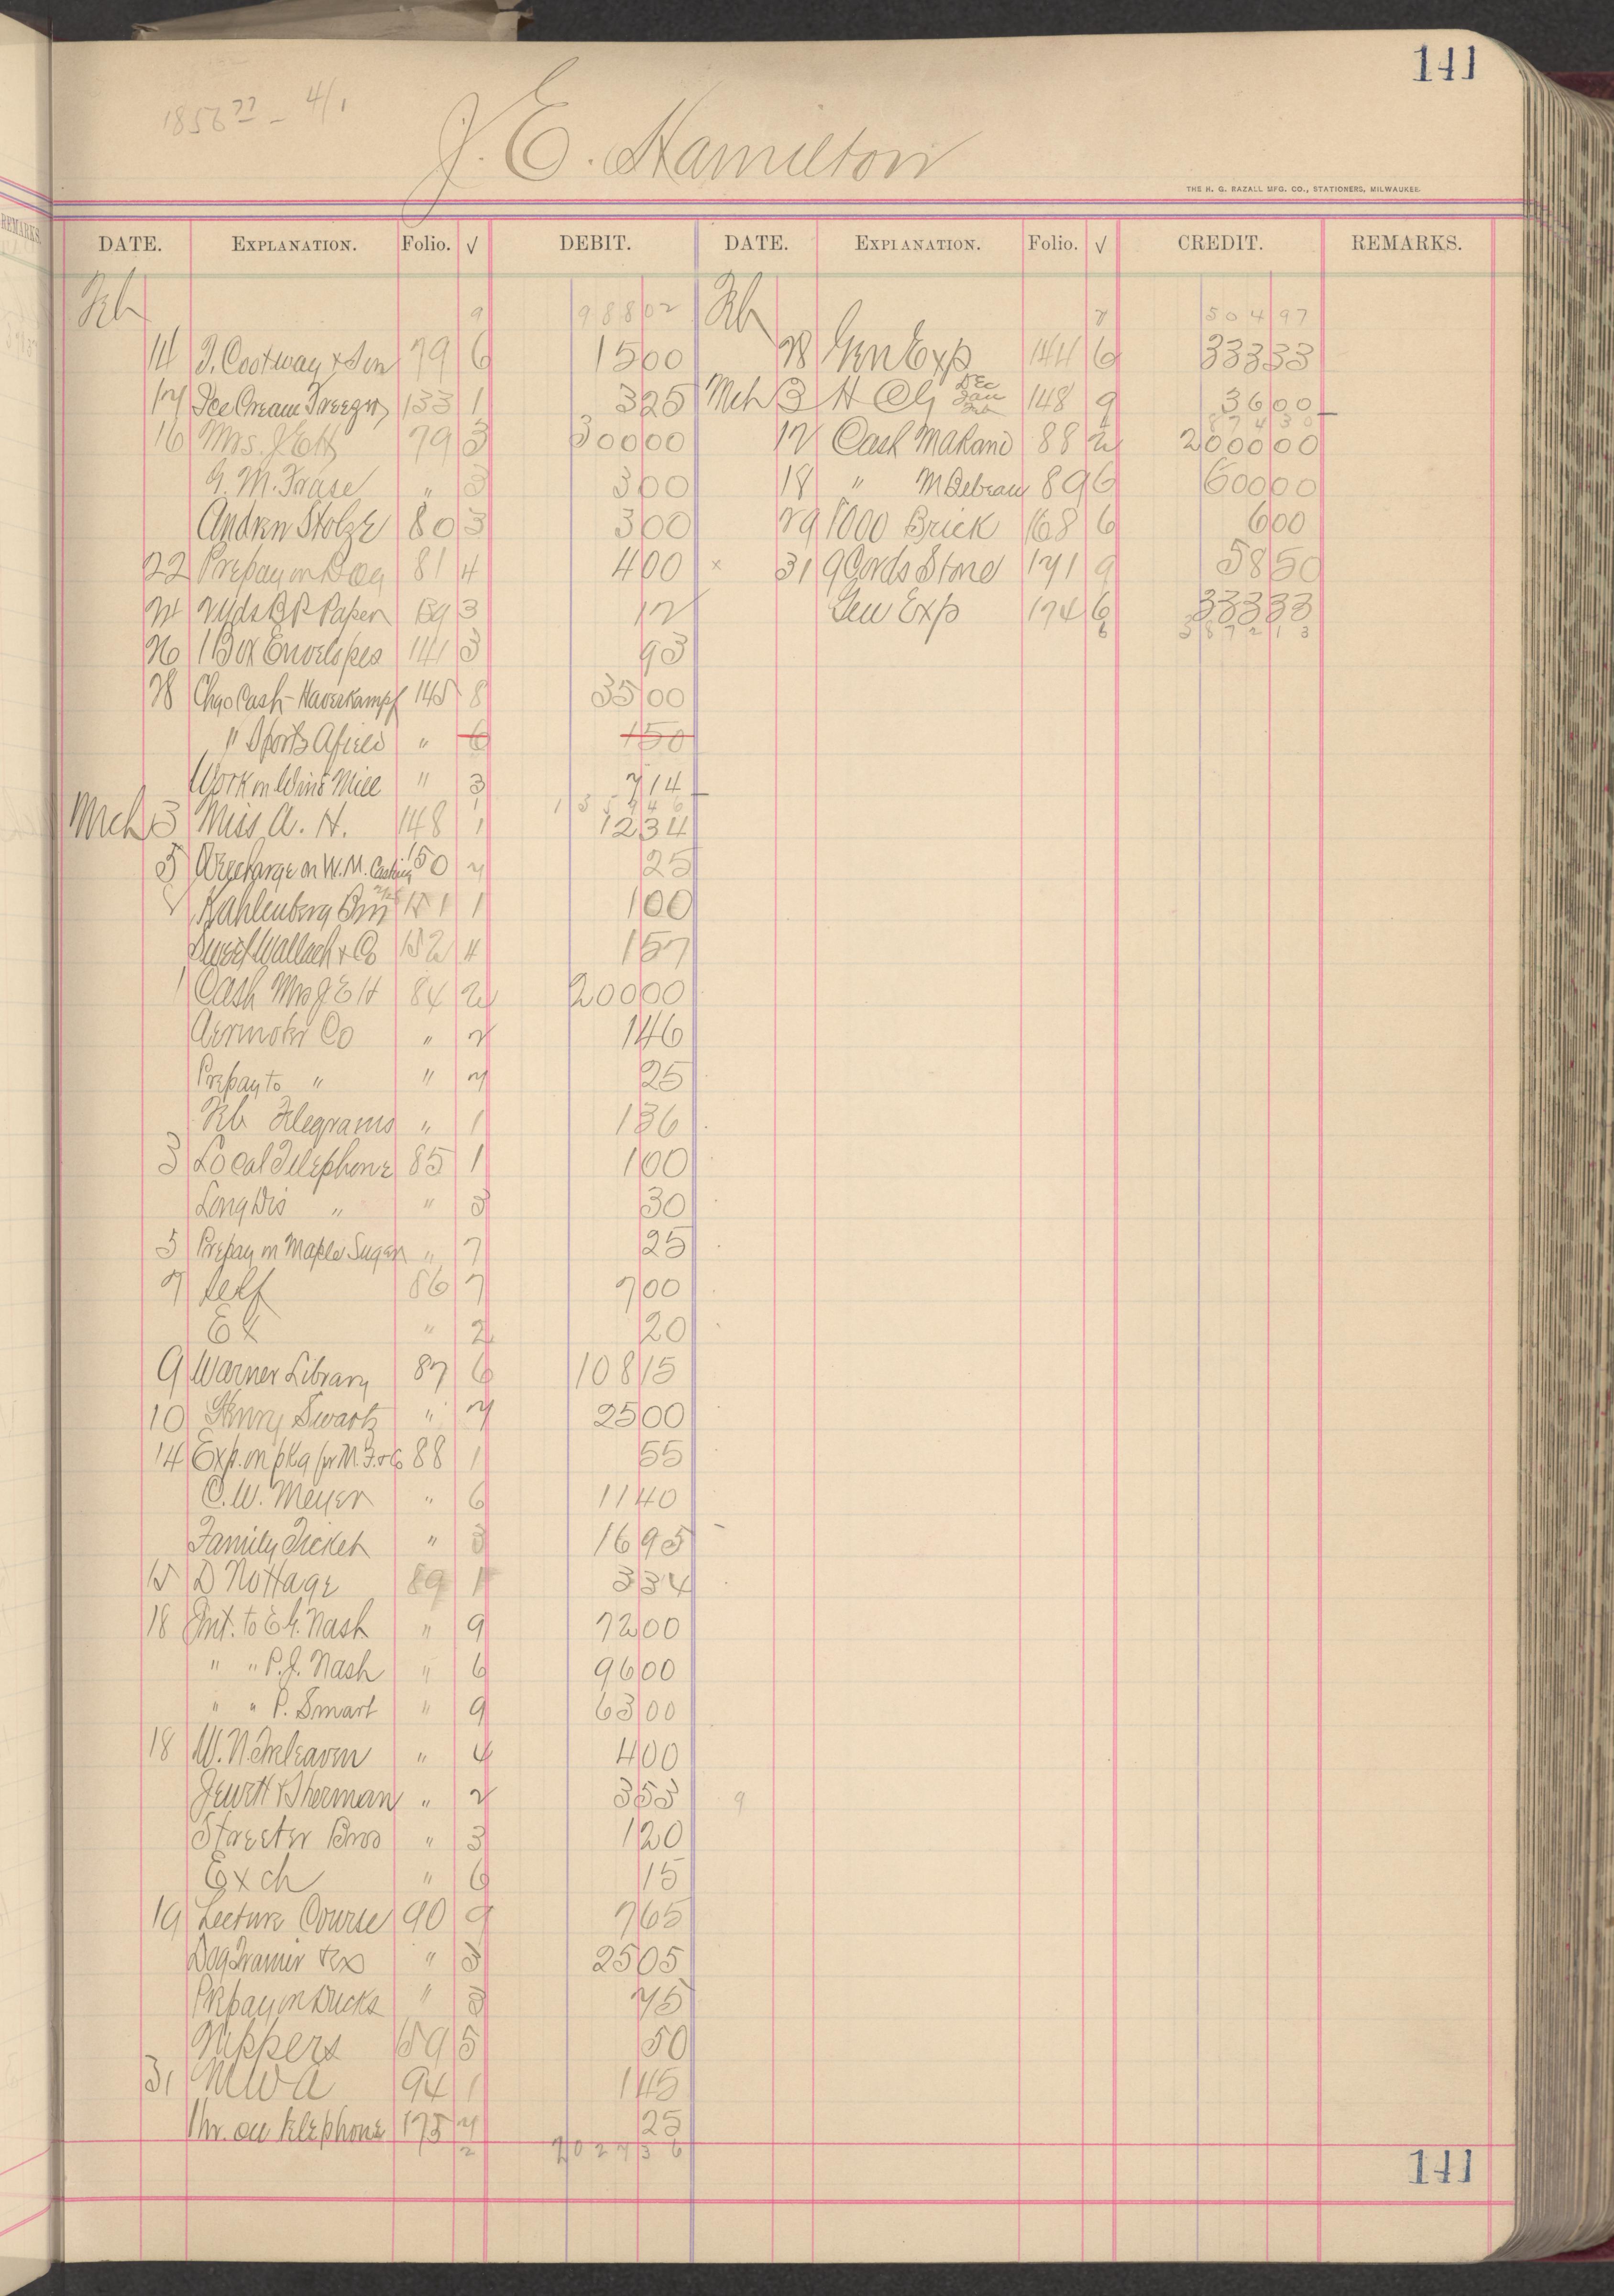 141
1856 77 - 4/1
J. E. Hamilton
THE H. G. RAZALL MFG. CO., STATIONERS, MILWAUKEE.
DATE. EXPLANATION. Folio. √ DEBIT. DATE. EXPLANATION. Folio. √ CREDIT. REMARKS.
Feb 9 988 02 Feb 7 504 97
14 79 6 15 00 28 Gen Exp 144 6 333 33
17 Ice Cream Freezer 133 1 3 25 Mch 3 H Dec Jan Feb 148 9 36 00
874 30
16 Mrs. J E H 79 3 300 00 12 Cash 88 2 2000 00
G. M. Frase " 3 3 00 18 " 89 6 600 00
Andrew Stolze 80 3 3 00 29 1000 Brick 168 6 6 00
22 Prepay on Dog 81 4 4 00 × 31 9 Cords Stone 171 9 58 50
24 2 yds B P Paper 139 3 12 Gen Exp 174 6 333 33
6 3872 13
26 1 Box Envelopes 141 3 93
28 Chgo Cash - Haverkampf 145 8 35 00
" Sports Afield " 6 1 50
Work on Wind Mill " 3 7 14
1 1359 46
Mch 3 Miss A. H. 148 1 12 34
5 on W. M. Casting 150 7 25
Kahlenberg Bros 151 1 1 00
Wallach & Co 152 4 1 57
1 Cash Mrs J E H 84 2 200 00
Aermotor Co " 2 1 46
Prepay to " " 7 25
Feb Telegrams " 1 1 36
3 Local Telephone 85 1 1 00
Long Dis " " 3 30
5 Prepay on Maple Sugar " 7 25
7 Self 86 7 7 00
Ex " 2 20
9 Warner Library 87 6 108 15
10 Henry Swartz " 7 25 00
14 Exp. on pkg for M. F. & Co 88 1 55
C. W. Meyer " 6 11 40
Family Ticket " 3 16 95
15 D Nottage 89 1 3 34
18 Int. to E G. Nash " 9 72 00
" " P. J. Nash " 6 96 00
" " P. Smart " 9 63 00
18 W. " 4 4 00
Jewett & Sherman " 2 3 53 9
Streeter Bros " 3 1 20
Exch " 6 15
19 Lecture Course 90 9 7 65
Dog Trainer & Ex " 3 25 05
Prepay on Ducks " 3 75
Nippers 159 5 50
31 M W A 94 1 1 45
1 hr. on telephone 175 7 25
2 2027 36
141
REMARKS.